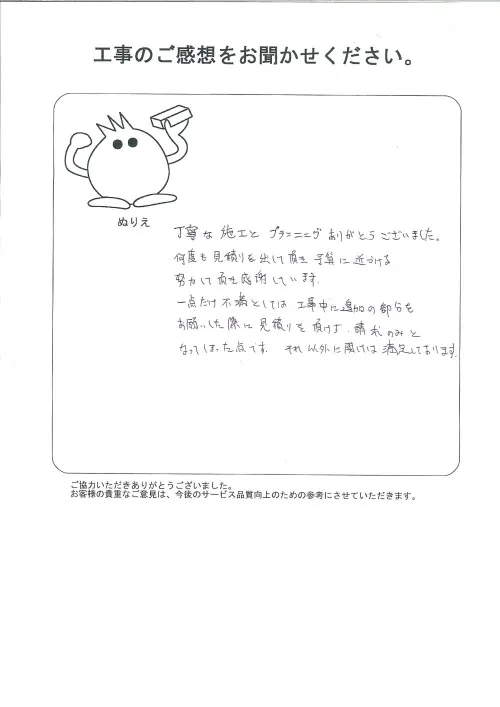 工事のご感想をお聞かせください。
ぬりえ
丁寧な施工とプランニングありがとうございました。
何度も見積りを出して頂き予算に近づける
努力して頂き感謝しています。
一点だけ不満としては工事中に追加の部分を
お願いした際に見積りを頂けず、請求のみと
なってしまった点です。それ以外に関しては満足しております。
ご協力いただきありがとうございました。
お客様の貴重なご意見は、今後のサービス品質向上のための参考にさせていただきます。